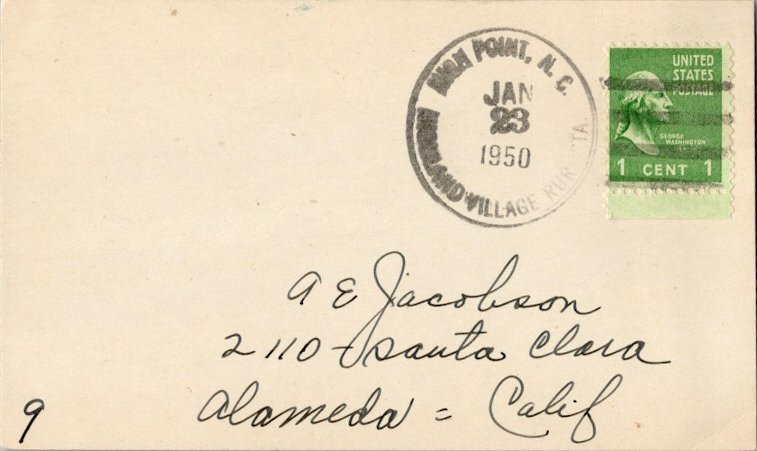 HIGH POINT, N. C.
JAN
23
1950
HIGHLAND VILLAGE RUR. STA.
UNITED
STATES
POSTAGE
GEORGE
WASHINGTON
1 CENT 1
A E Jacobson
2110 - Santa Clara
Alameda = Calif
9